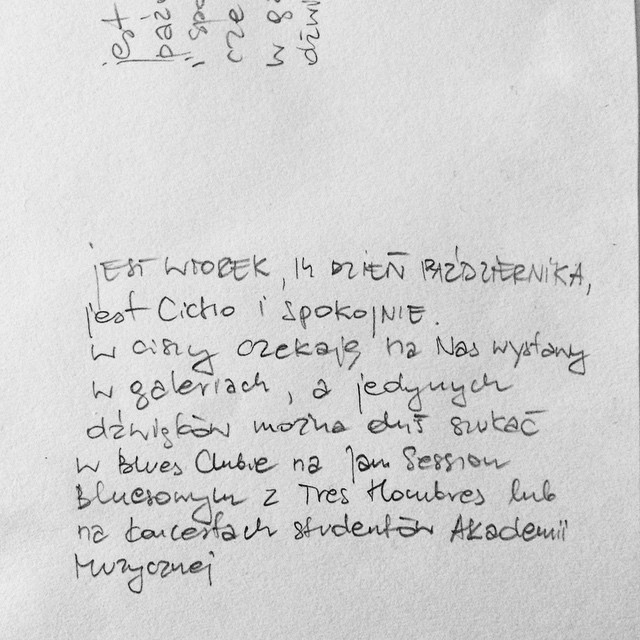 jest
paź
"spo
cze
w g
dźwi
jEST WTOREK, 14 DZIEŃ PAŹDZIERNIKA,
jest Cicho i SpokojNIE.
w ciszy czekają na Nas wystawy
w galeriach, a jedynych
dźwięków można dziś szukać
w Blues Clubie na Jam Session
Bluesowym z Tres Hombres lub
na koncertach studentów Akademii
Muzycznej